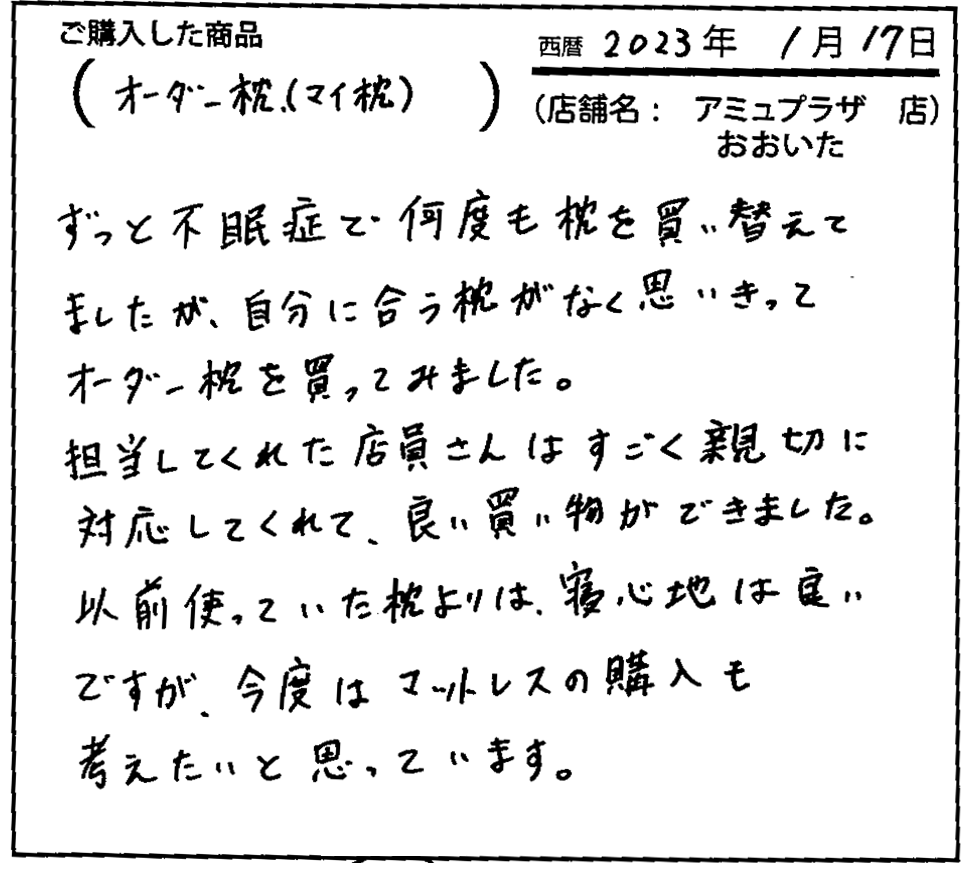 ご購入した商品
西暦 2023年 1月17日
(オーダー枕、(マイ枕))
(店舗名： アミュプラザ 店)
おおいた
ずっと不眠症で何度も枕を買い替えて
ましたが、自分に合う枕がなく思いきって
オーダー枕を買ってみました。
担当してくれた店員さんはすごく親切に
対応してくれて、良い買い物ができました。
以前使っていた枕よりは、寝心地は良い
ですが、今度はマットレスの購入も
考えたいと思っています。